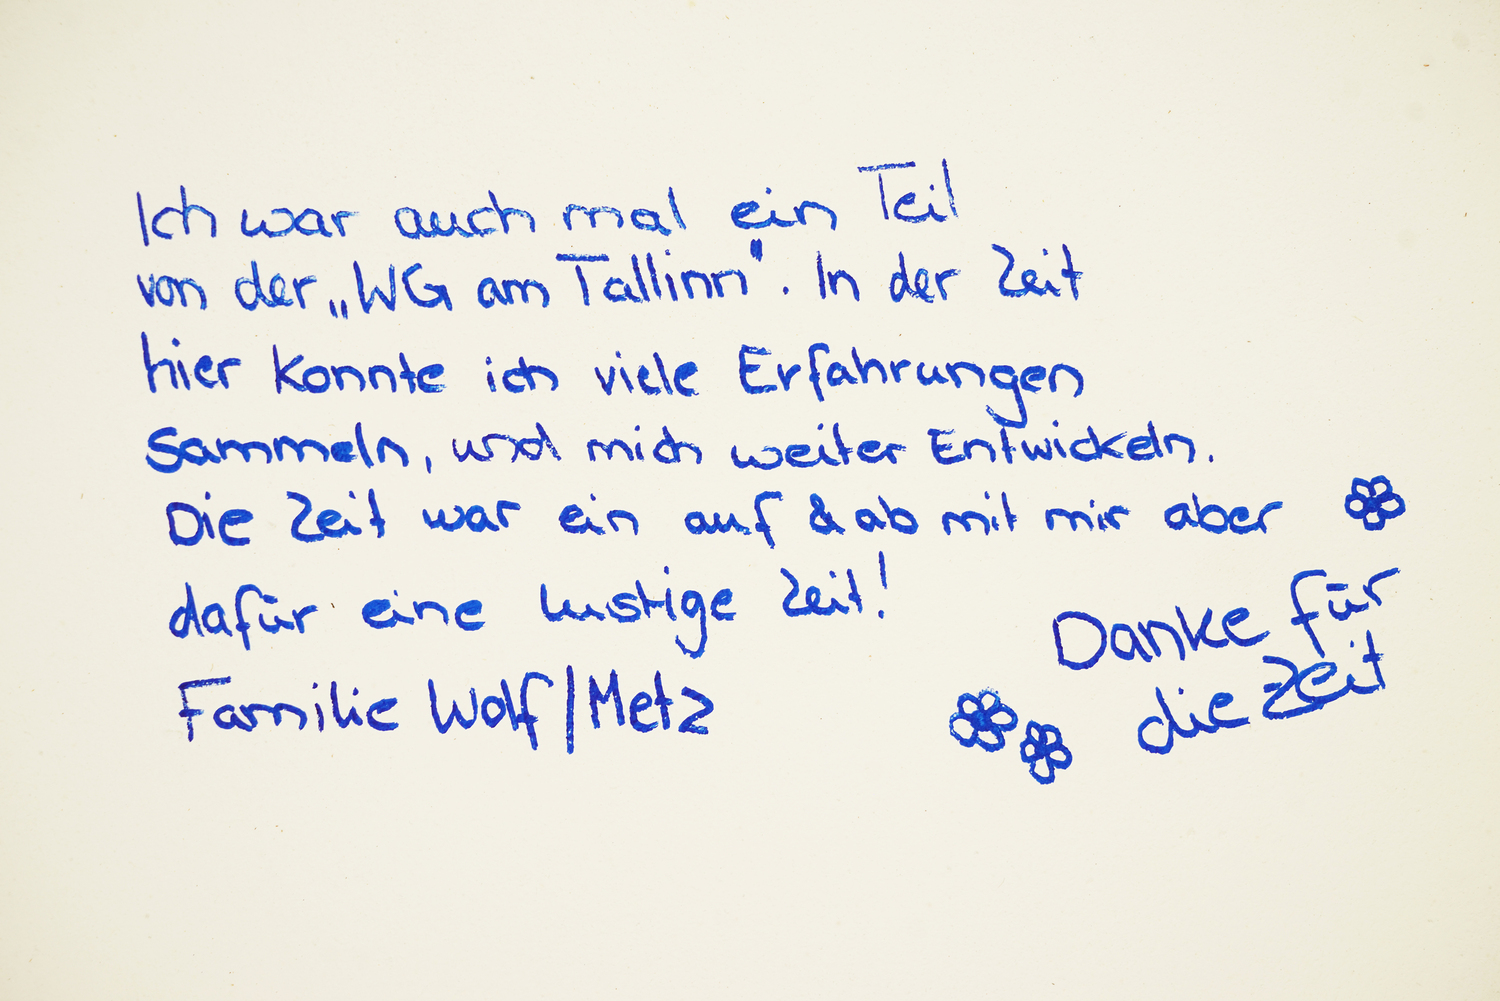 Ich war auch mal ein Teil
von der „WG am Tallinn". In der Zeit
hier konnte ich viele Erfahrungen
Sammeln, und mich weiter Entwickeln.
Die Zeit war ein auf & ab mit mir aber
dafür eine lustige Zeit!
Familie Wolf/Metz
Danke für
die Zeit